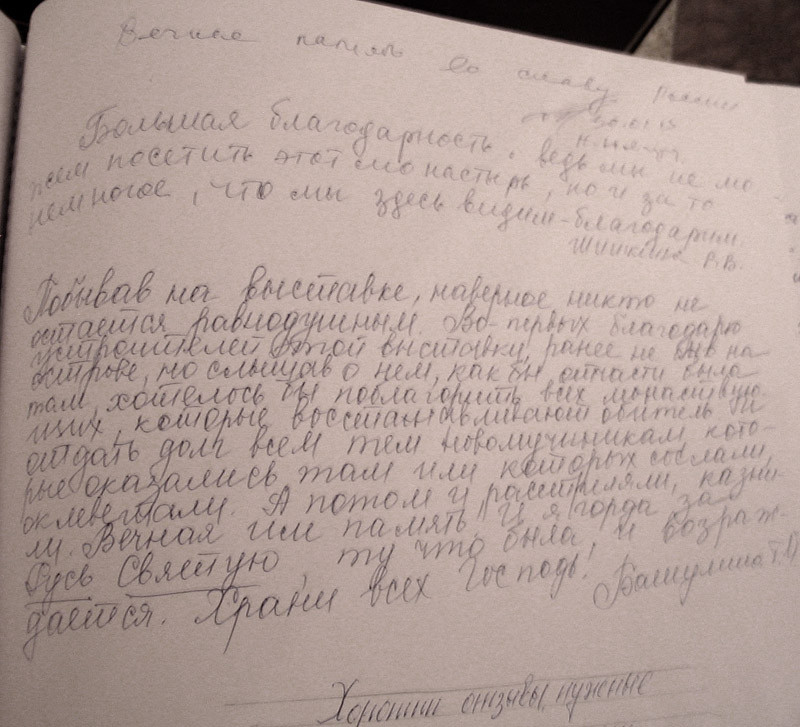 Вечная память во славу России
30.01.15
Большая благодарность, ведь мы не мо-
жем посетить этот монастырь, но и за то
немногое, что мы здесь видим - благодарим.
Шишкина В.В.
Побывав на выставке, наверное никто не
остается равнодушным. Во-первых благодарю
устроителей этой выставки, ранее не быв на
острове, но слышав о нем, как бы отчасти была
там, хотелось бы поблагодарить всех монаствую-
щих, которые восстанавливают обитель и
отдать долг всем тем новомученикам, кото-
рые оказались там или которых сослали,
оклеветали. А потом и расстреляли, казни-
ли. Вечная им память! И я горда за
Русь Святую, ту что была, и возраж-
дается. Храни всех Господь!
Хорошии отзывы, нужные